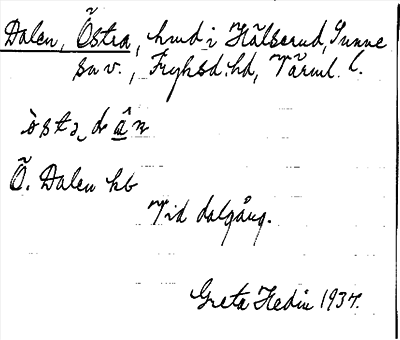 Dalen, Östra, hmd i Hälserud, Sunne
sn v., Fryksd. hd, Värml. l.
òsta, dɑ̂n
Ö. Dalen hb
Vid dalgång.
Greta Hedin 1937.